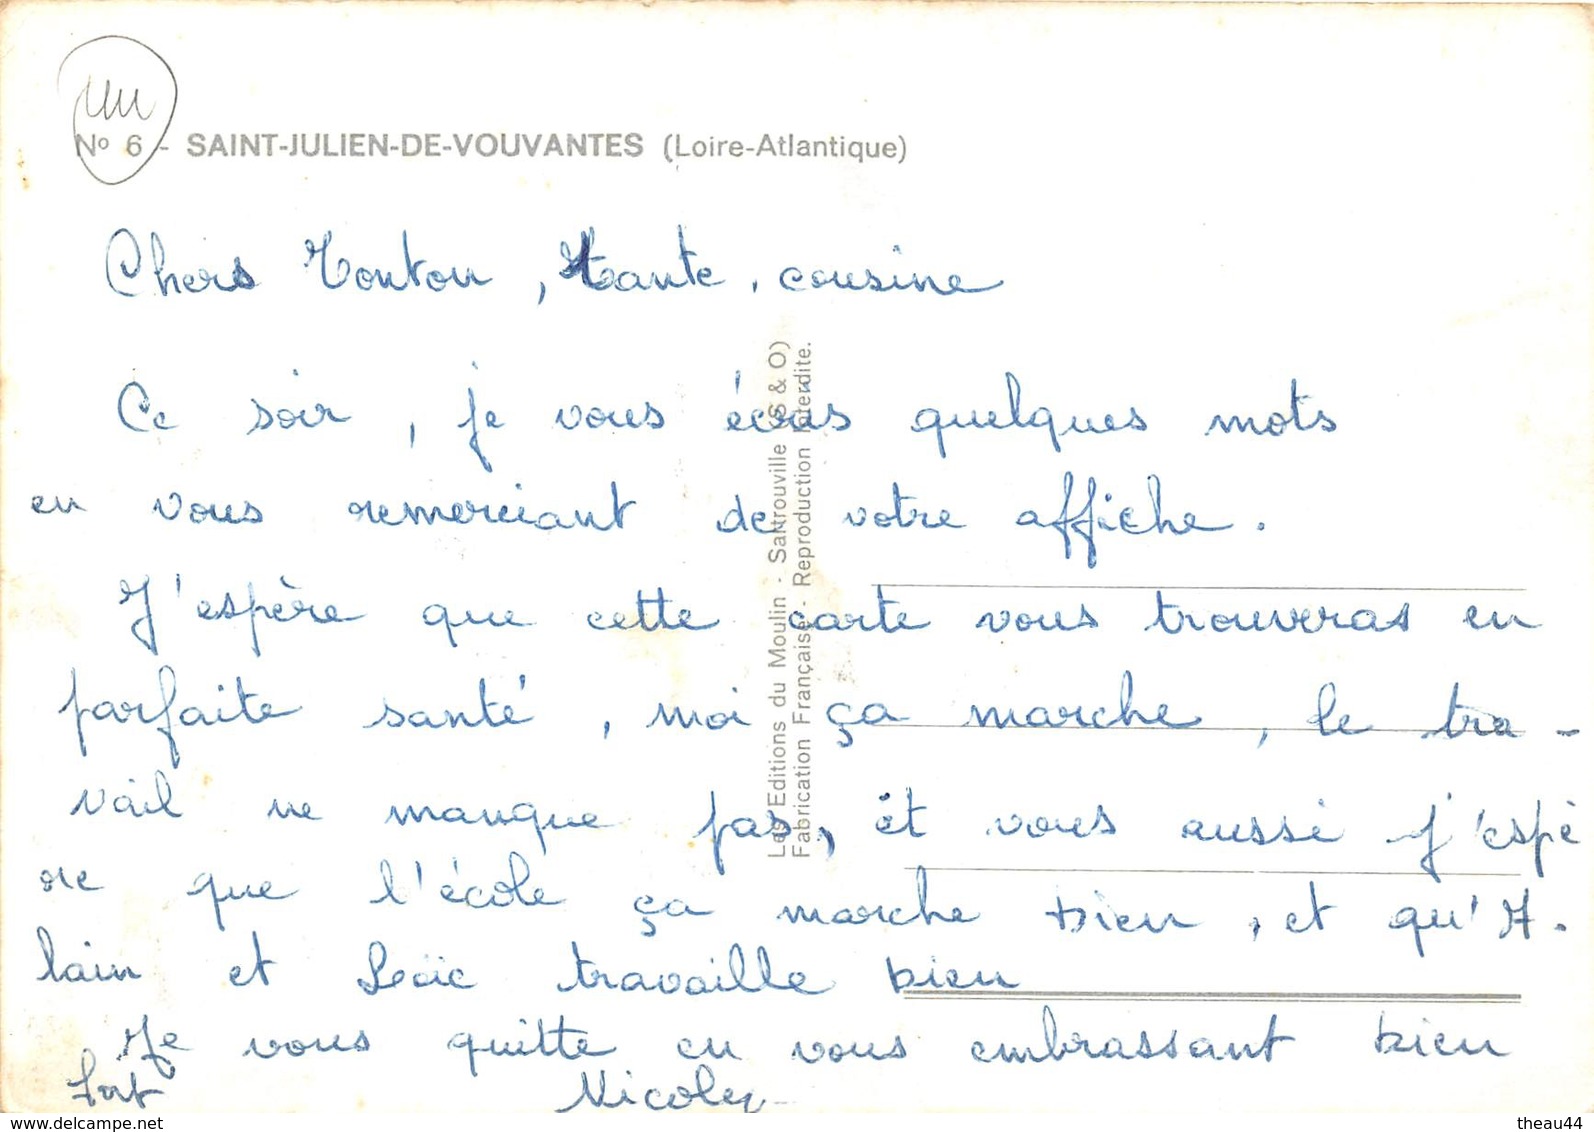 un
N° 6 - SAINT-JULIEN-DE-VOUVANTES (Loire-Atlantique)
Chers Tonton, tante, cousine
Ce soir, je vous écris quelques mots
en vous remerciant de votre affiche.
J'espère que cette carte vous trouveras en
parfaite santé, moi ça marche, le tra-
vail ne manque pas, et vous aussi j'espè
re que l'école ça marche bien, et qu'A.
lain et Loïc travaille bien
Je vous quitte en vous embrassant bien
fort
Les Editions du Moulin - Sartrouville (S & O)
Fabrication Française - Reproduction Interdite.
www.delcampe.net
theau44